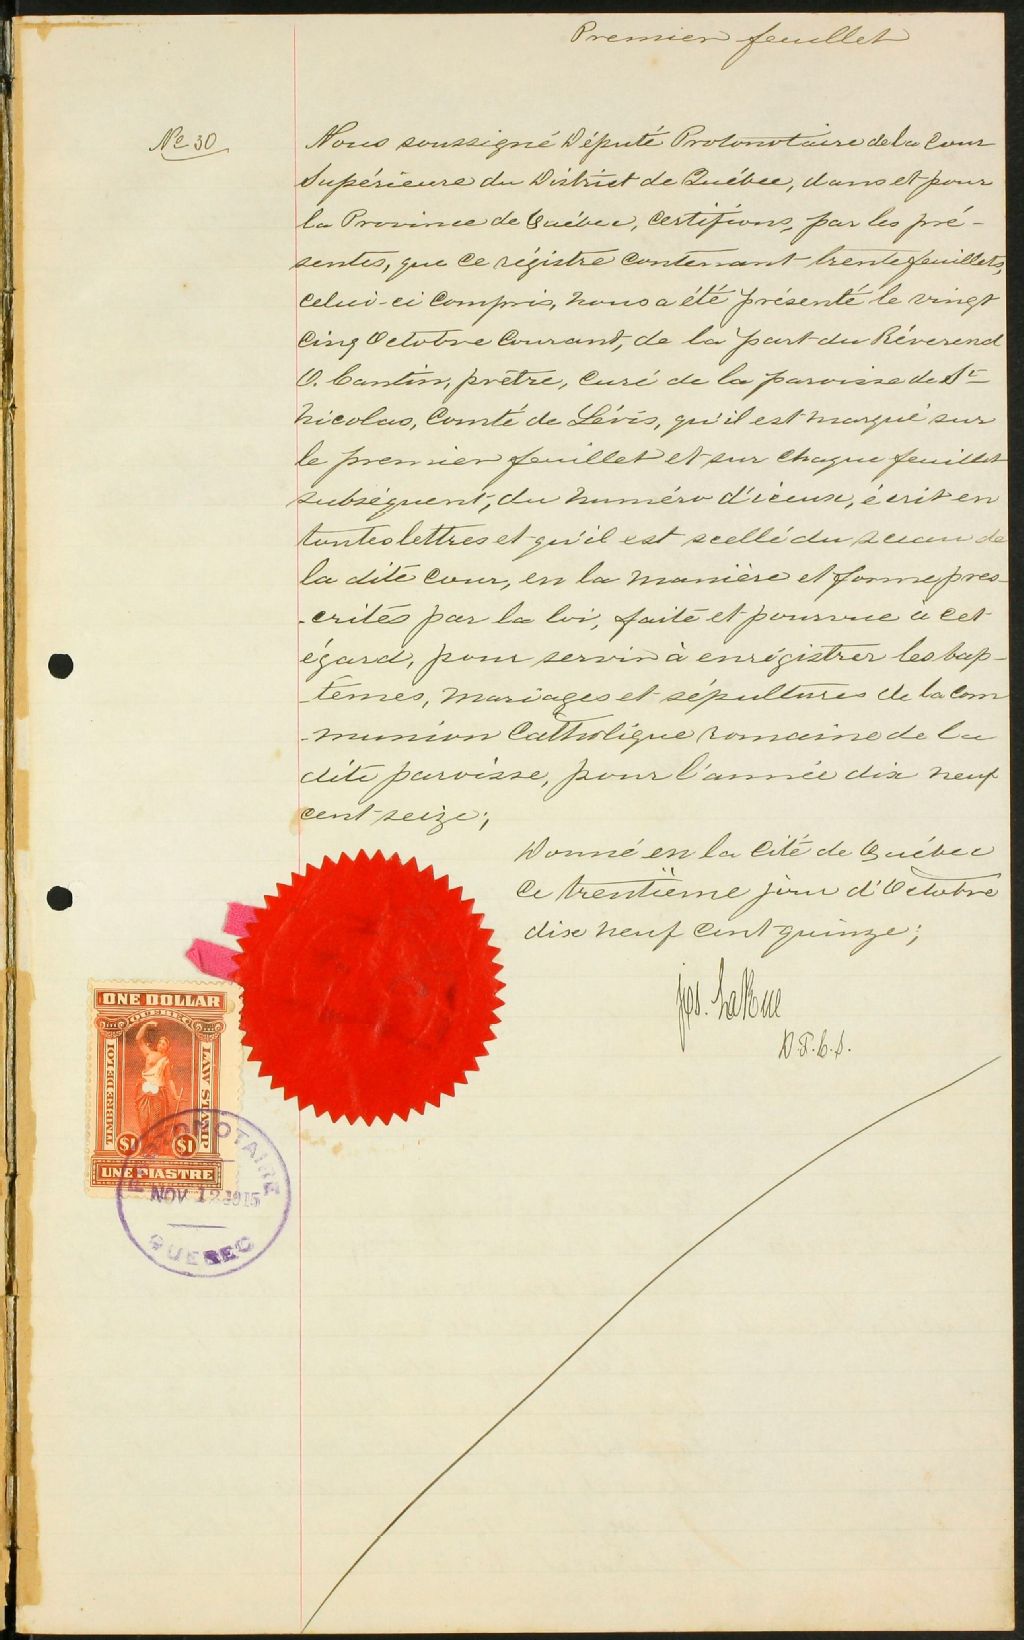 Premier feuillet
No 30
Nous soussigné Député Protonotaire de la Cour
Supérieure du District de Québec, dans et pour
la Province de Québec, certifions, par les pré-
sentes, que ce régistre contenant trente feuillets,
celui-ci compris, nous a été présenté le vingt
cinq Octobre courant, de la part du Révérend
O. Cantin, prêtre, curé de la paroisse de St
Nicolas, Comté de Lévis, qu'il est marqué sur
le premier feuillet et sur chaque feuillet
subséquent, du numéro d'iceux, écrit en
toutes lettres et qu'il est scellé du sceau de
la dite cour, en la manière et forme pres-
-crites par la loi, faite et pourvue à cet
égard, pour servir à enrégistrer les bap-
-têmes, mariages et sépultures de la com
-munion Catholique romaine de la
dite paroisse, pour l'année dix neuf
cent seize;
Donné en la Cité de Québec
ce trentième jour d'Octobre
dix neuf cent quinze;
Jos. LaRue
D.P.C.S.
ONE DOLLAR
QUEBEC
TIMBRE DE LOI
LAW STAMP
$1 $1
UNE PIASTRE
PROTONOTAIRE
NOV 12 1915
QUEBEC